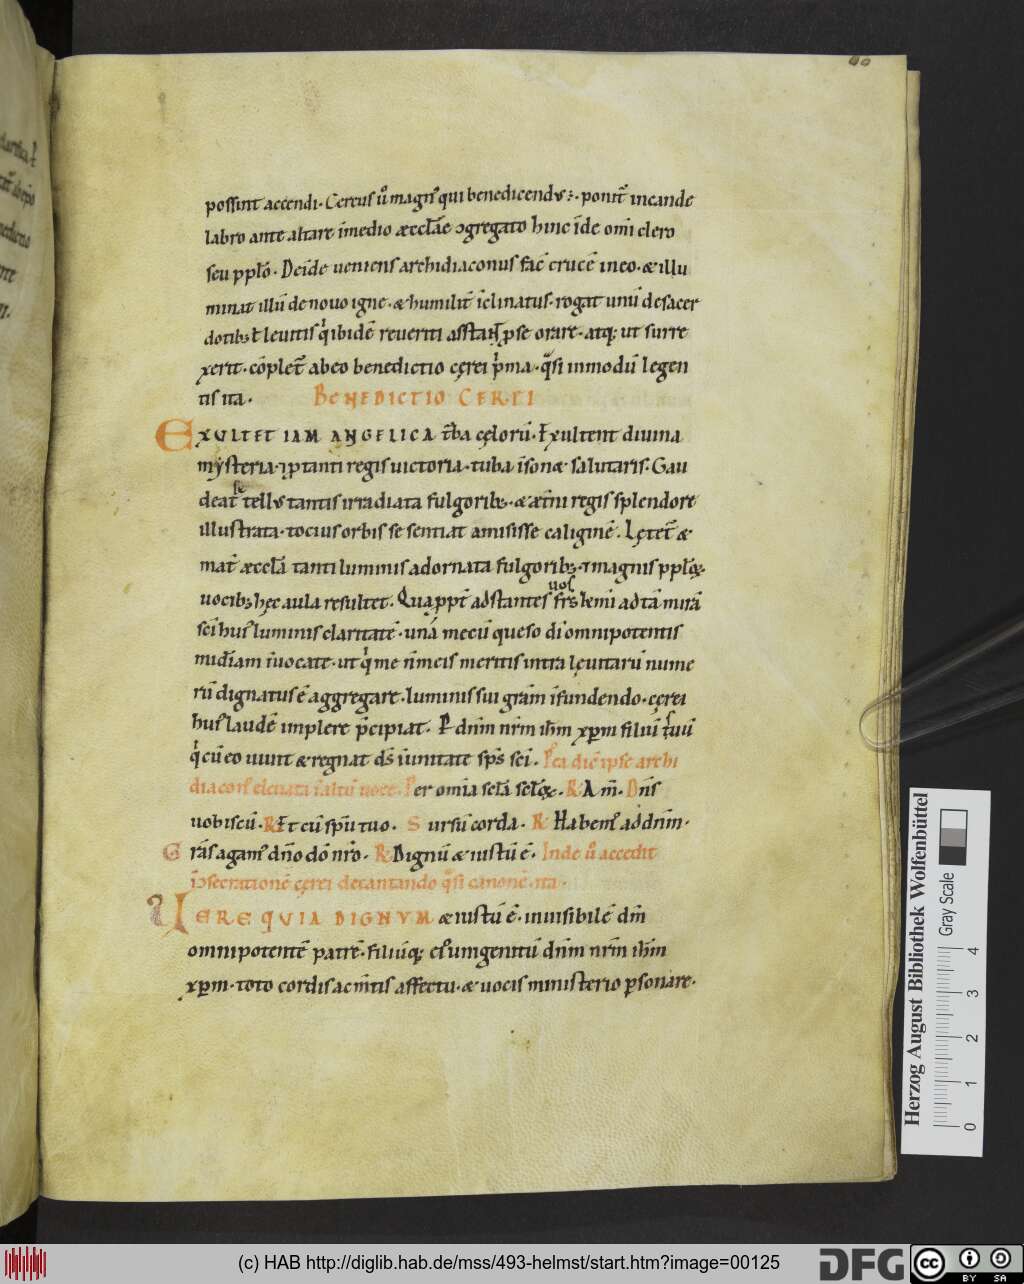 possint accendi. Cereus ů magn᷒ qui benedicendus; ponit̄ in cande
labro ante altare ī medio æccl̄ae ɔgregato hinc īde omī clero
seu pplō. Deīde ueniens archidiaconus fac̄ crucē in eo. & illu
minat illū de nouo igne. & humilit̄ īclinatus. rogat unū de sacer
dotib; ł leuitis qͥ ibidē reuerīti
orare. atq; ut surre
xerit. cōplet̄ ab eo benedictio cęrei pͥma. qᷓsi in modū legen
tis ita.
BENEDICTIO CEREI
EXULTET IAM ANGELICA t̄ba cęlorū. Exultent diuina
mysteria. & p tanti regis uictoria. tuba īsonæ salutaris. Gau
deat se tellus tantis irradiata fulgorib;. & æt̄ni regis splendore
illustrata. tocius orbis se sentiat amisisse caliginē. Lętet̄ &
mat̄ æccl̄a tanti luminis adornata fulgorib;. & magnis pplōꝝ
uocib; hęc aula resultet. Qua ppt̄ adstantes uos fr̄s k̄mi ad tā mirā
sc̄i hui᷒ luminis claritatē. unā mecū queso di omnipotentis
mīdiam īuocate. ut qͥ me n̄ meis meritis intra leuitarū nume
rū dignatus ē aggregare. luminis sui gr̄am īfundendo. cęrei
hui᷒ laudē implere p̄cipiat. P dn̄m nr̄m ih̄m xp̄m filiū tuū
qͥ cū eo uiuit & regnat ds̄ ī unitate sp̄s sc̄i. Pea dic̄ ipse archi
diacon᷒ eleuata ī altū uoce. Per omīa secl̄a secl̄oꝝ. R̷ Am̄. Dn̄s
uobiscū. R̷ Et cū sp̄u tuo. Sursū corda. R̷ Habem᷒ ad dn̄m.
Grās agam᷒ dn̄o dō nr̄o. R̷ Dignū & iustū ē. Inde ů accedit
ī ɔsecrationē cęrei decantando qᷓsi canonē ita.
UERE QUIA DIGNUM & iustū ē. inuisibilē dm̄
omnipotentē patrē. filiūq; ei᷒ unigenitū dn̄m nr̄m ih̄m
xp̄m. toto cordis ac m̄tis affectu. & uocis ministerio ꝑsonare.
Herzog August Bibliothek Wolfenbüttel
Gray Scale
0 1 2 3 4
(c) HAB http://diglib.hab.de/mss/493-helmst/start.htm?image=00125
DFG
cc BY SA